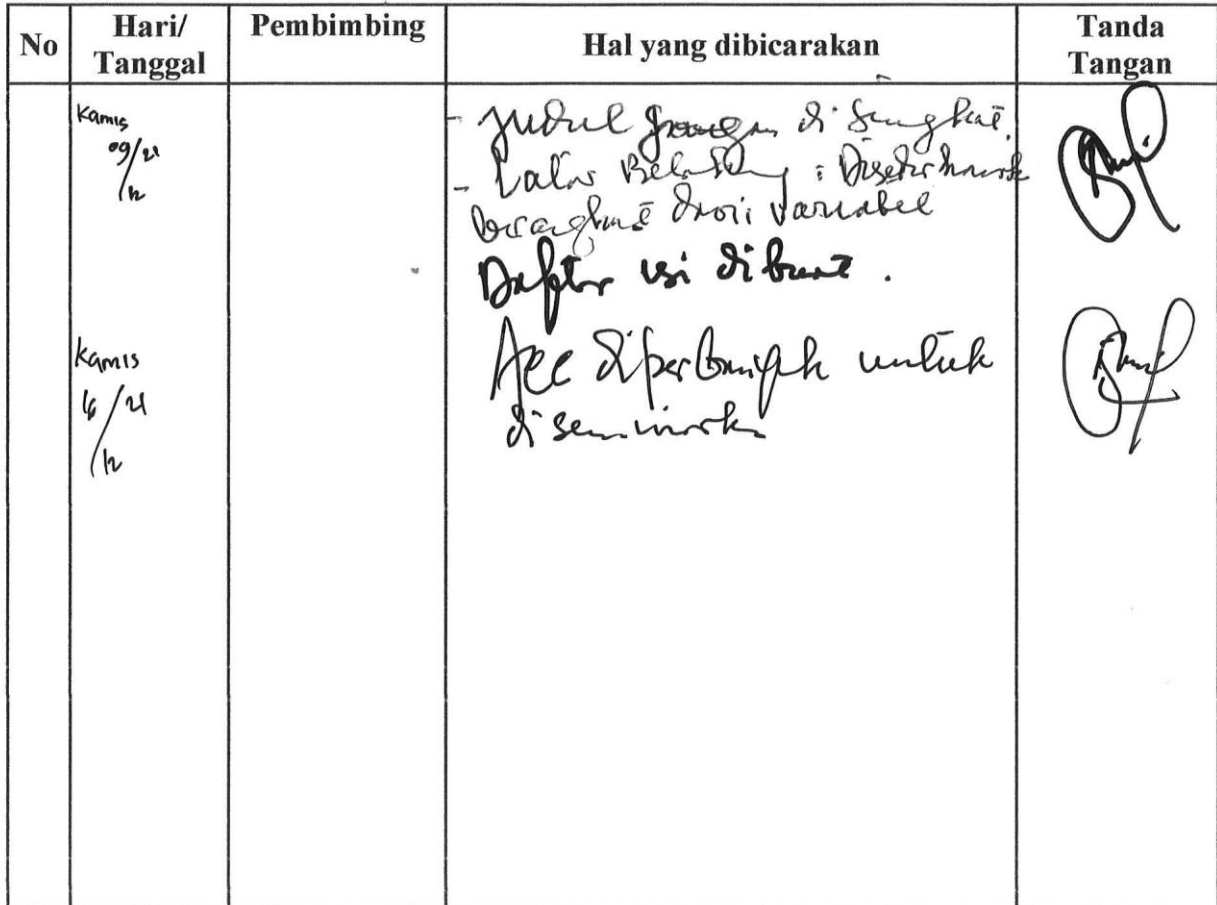 No
Hari/
Tanggal
Pembimbing
Hal yang dibicarakan
Tanda
Tangan
Kamis
09/21
/12
- Judul jangan di singkat.
- Latar Belakang :
dari variabel
Daftar isi dibuat.
Kamis
/21
/12
Acc diperbanyak untuk
diseminarkan